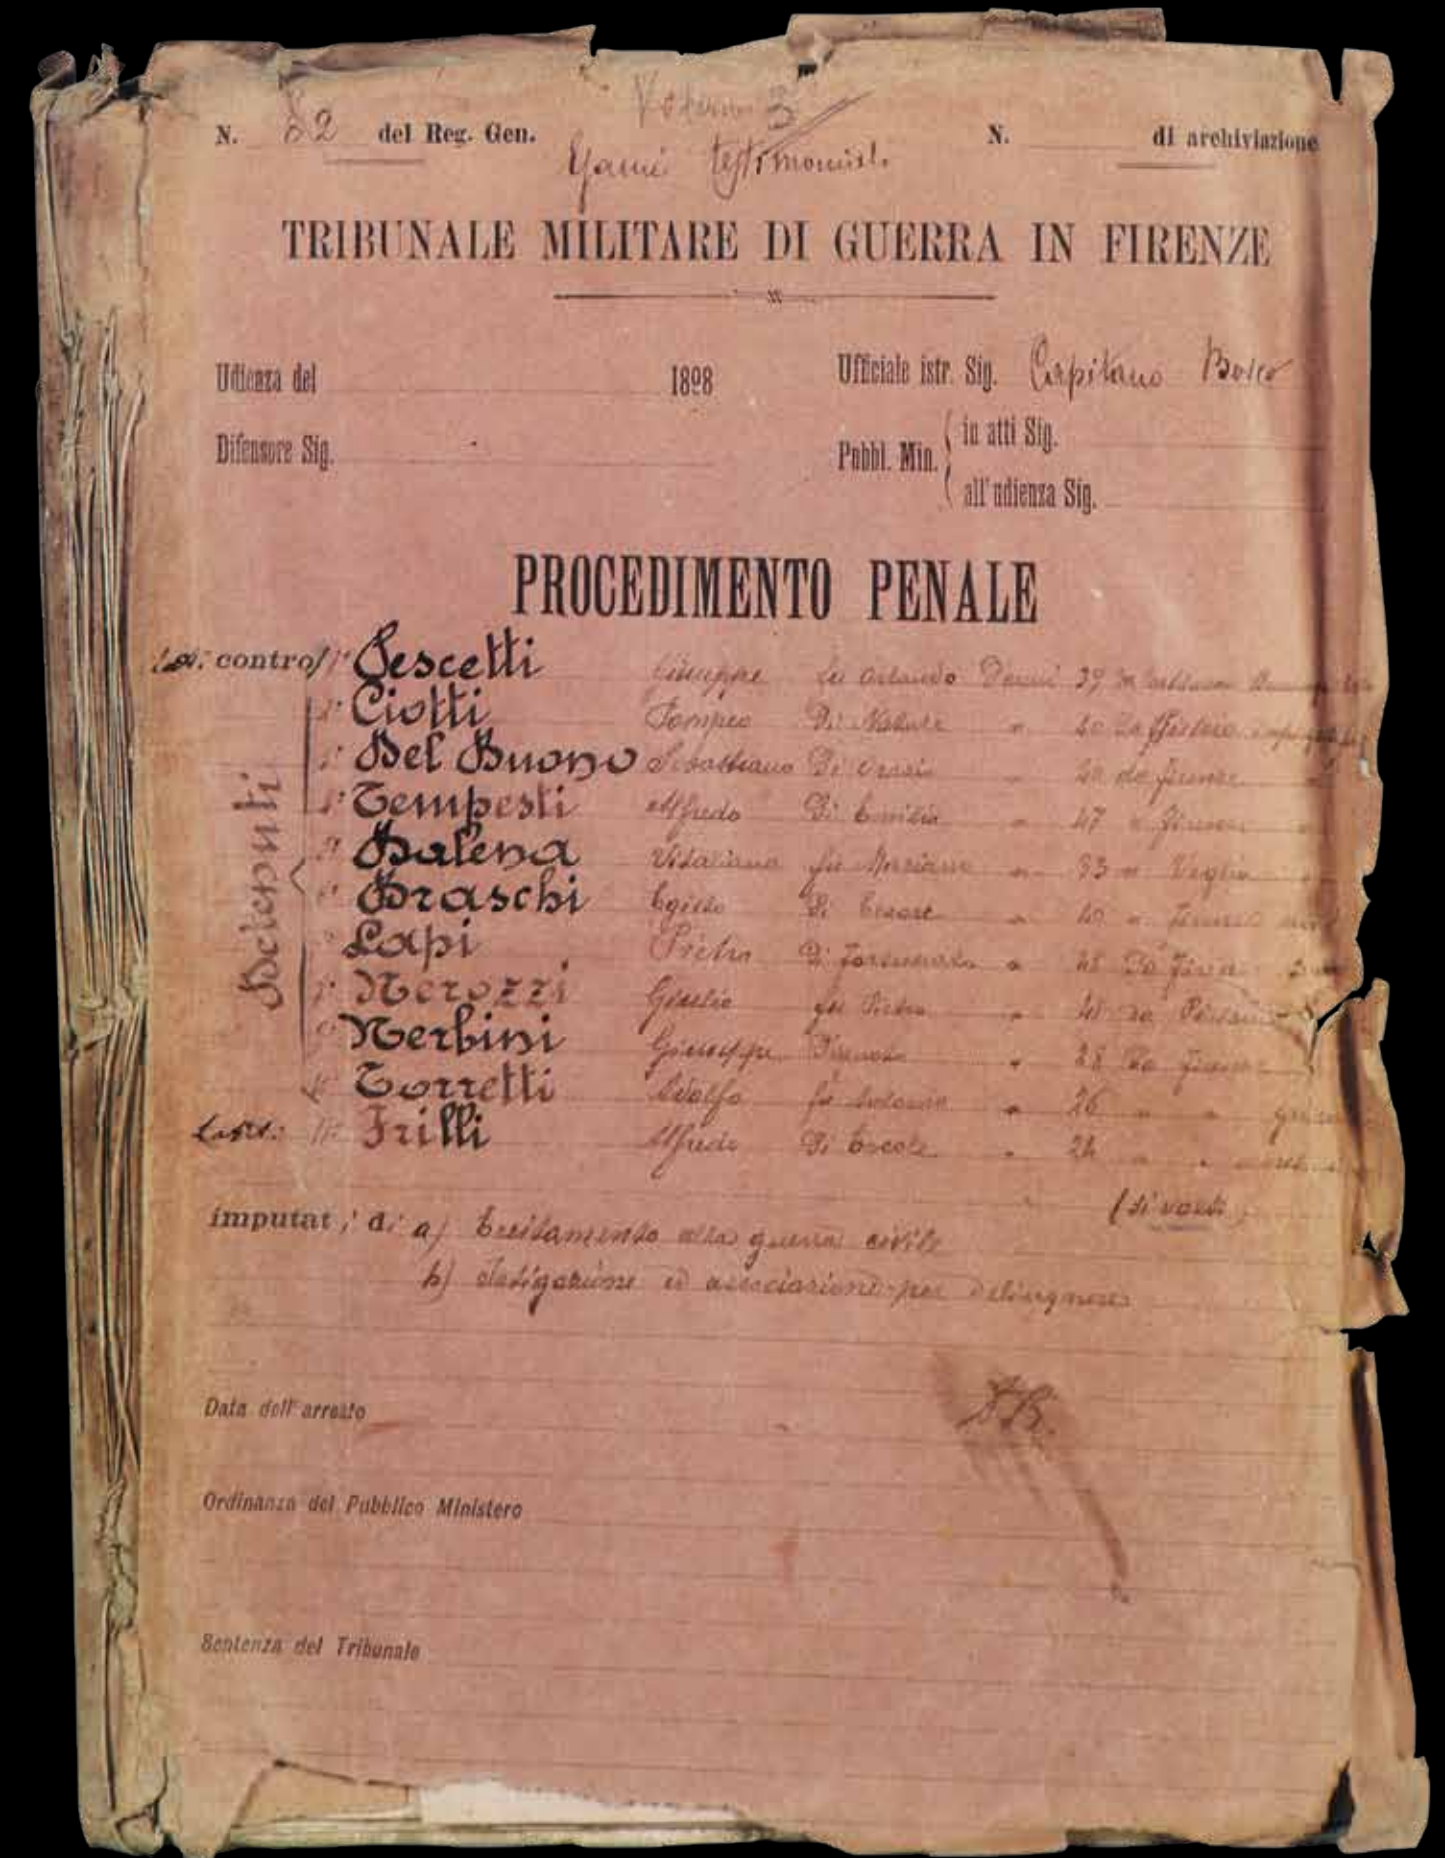 N. 82 del Reg. Gen. Volume 3 N. di archiviazione
Esami testimoniali
TRIBUNALE MILITARE DI GUERRA IN FIRENZE
Udienza del 1898 Ufficiale istr. Sig. Capitano Bosco
Difensore Sig. Pubbl. Min. in atti Sig.
all'udienza Sig.
PROCEDIMENTO PENALE
contro 1° Pescetti Giuseppe fu Orlando D'anni 39
Detenuti
2° Ciotti Pompeo Di Natale " 40
3° Del Buono Sebastiano Di Orazio " da Firenze
4° Tempesti Alfredo Di Emilio " 47 " Firenze
5° Balena Vitaliano fu Marziano " 33 "
6° Braschi Egisto Di Cesare " 40 " Firenze
Lapi Pietro Di " 48 Da
8° Nerozzi Giulio fu Pietro " 41 Da
9° Nerbini Giuseppe " 28 Da Firenze
10° Torretti Adolfo fu " 26 " "
11° Frilli Alfredo Di Ercole " 24 " "
(si volti)
imputati di a) Eccitamento alla guerra civile
b) Istigazione ed associazione per delinquere
Data dell'arresto
Ordinanza del Pubblico Ministero
Sentenza del Tribunale